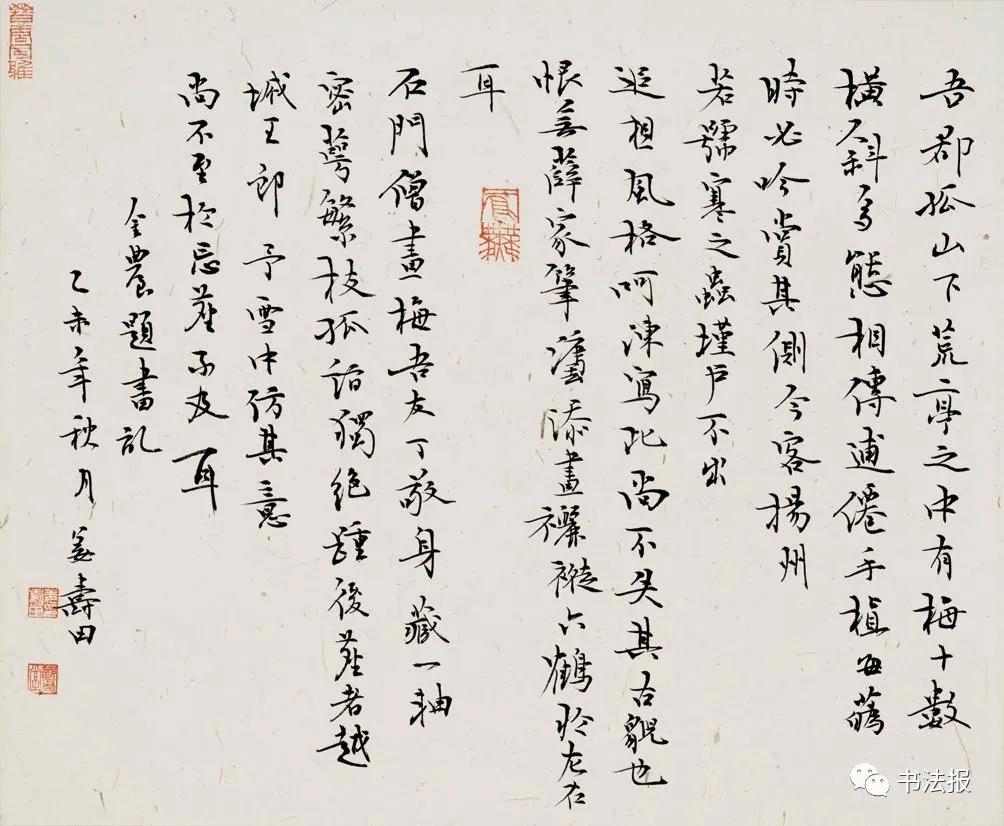 吾郡孤山下荒亭之中有梅十數
橫斜多態相傳逋僊手植每蘤
時必吟賞其側今客揚州
若號寒之蟲墐戶不出
追想風格呵凍寫此尚不失其古貌也
恨無薛家筆添畫褵褷六鶴於左右
耳
石門僧畫梅吾友丁敬身藏一軸
密萼繁枝孤詣獨絕踵後塵者越
城王郎予雪中仿其意
尚不至於忘塵不及耳
金農題畫記
乙未年秋月姜壽田
书法报